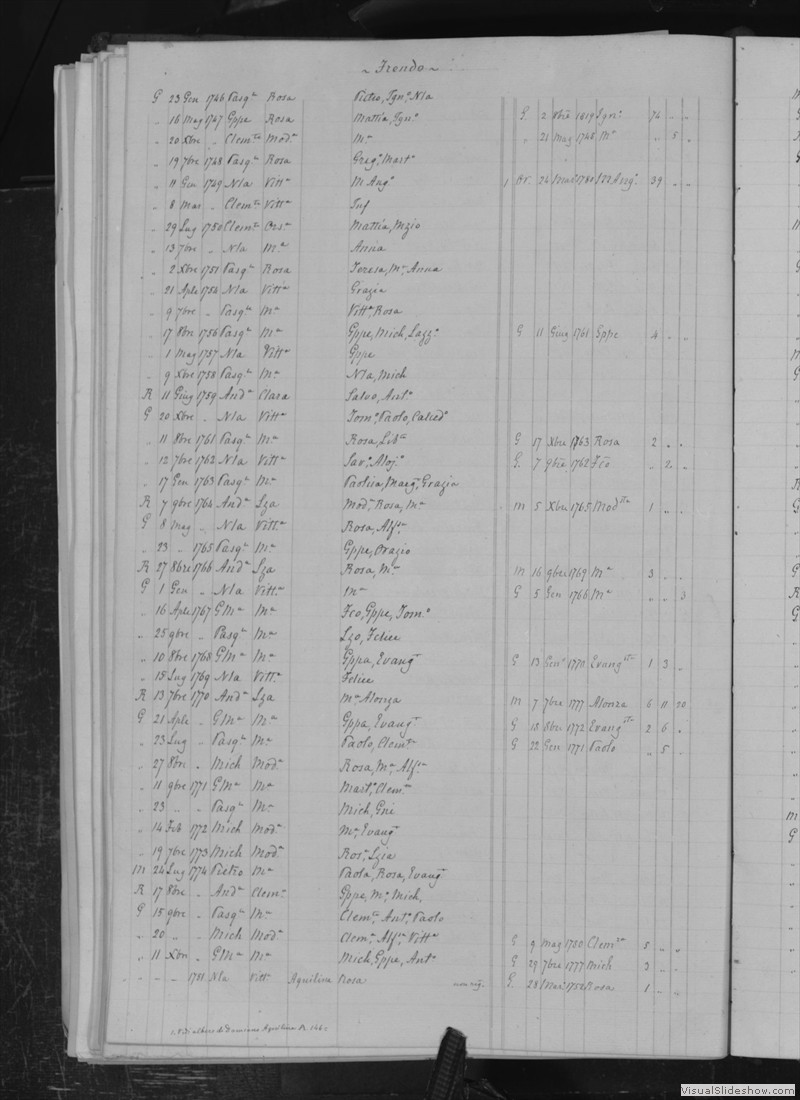 ~ Trendo ~
G 23 Gen 1746 Pasqle Rosa Pietro, Igno, Nla
" 16 Mag 1747 Gppe Rosa Mattia, Igno G. 2 1819 Igno 74 " "
" 20 Xbre " Clemte Moda Ma " 21 Mag 1748 Ma " 5 "
" 19 7bre 1748 Pasqle Rosa Grego, Marto
" 11 Gen 1749 Nla Vitta M Ango 1 Br. 24 Mar 1780 Ango 39 " "
" 8 Mar " Clemte Vitta Inf
" 29 Lug 1750 Clemte Orsa Mattia, Mzio
" 13 7bre " Nla Ma Anna
" 2 Xbre 1751 Pasqle Rosa Teresa, Ma, Anna
" 21 Aple 1754 Nla Vitta Grazia
" 9 7bre " Pasqle Ma Vitta, Rosa
" 17 8bre 1756 Pasqle Ma Gppe, Mich, Lazzo G 11 Giug 1761 Gppe 4 " "
" 1 Mag 1757 Nla Vitta Gppe
" 9 Xbre 1758 Pasqle Ma Nla, Mich
R 11 Giug 1759 Anda Clara Salvo, Anto
G 20 Xbre " Nla Vitta Tomo, Paolo, Calcedo
" 11 8bre 1761 Pasqle Ma Rosa, Liba G 17 Xbre 1763 Rosa 2 " "
" 12 7bre 1762 Nla Vitta Savo, Alojo G. 7 9bre 1762 Fco " 2 "
" 17 Gen 1763 Pasqle Ma Paolica, Marga, Grazia
R 7 9bre 1764 Anda Lza Moda, Rosa, Ma M 5 Xbre 1765 Modta 1 " "
G 8 Mag " Nla Vitta Rosa, Alfa
" 23 " 1765 Pasqle Ma Gppe, Orazio
R 27 8bre 1766 Anda Lza Rosa, Ma M 16 9bre 1769 Ma 3 " "
G 1 Gen " Nla Vitta Ma G 5 Gen 1766 Ma " " 3
" 16 Aple 1767 GMa Ma Fco, Gppe, Tomo
" 25 9bre " Pasqle Ma Lzo, Felice
" 10 8bre 1768 GMa Ma Gppa, Evanga G 13 Geno 1770 Evangsta 1 3 "
" 15 Lug 1769 Nla Vitta Felice
R 13 7bre 1770 Anda Lza Ma Alonza M 7 7bre 1777 Alonza 6 11 20
G 21 Aple " GMa Ma Gppa, Evanga G 18 8bre 1772 Evangsta 2 6 "
" 23 Lug " Pasqle Ma Paolo, Clemte G 22 Gen 1771 Paolo " 5 "
" 27 8bre " Mich Moda Rosa, Ma, Alfa
" 11 9bre 1771 GMa Ma Marto, Clemte
" 23 " " Pasqle Ma Mich, Gni
" 14 Feb 1772 Mich Moda Ma, Evanga
" 19 7bre 1773 Mich Moda Rosa, Lzia
M 24 Lug 1774 Pietro Ma Paola, Rosa, Evanga
R 17 8bre " Anda Clema Gppe, Ma, Mich,
G 15 9bre " Pasqle Ma Clemte, Anto, Paolo
" 20 " " Mich Moda Clema, Alfa, Vitta G 9 Mag 1780 Clemza 5 " "
" 11 Xbre " GMa Ma Mich, Gppe, Anto G 29 7bre 1777 Mich 2 " "
" " " 1751 Nla Vitta Aquilina Rosa non rig. G. 28 Mar 1752 Rosa 1 " "
albero di Damiano Aquilina
VisualSlideshow.com